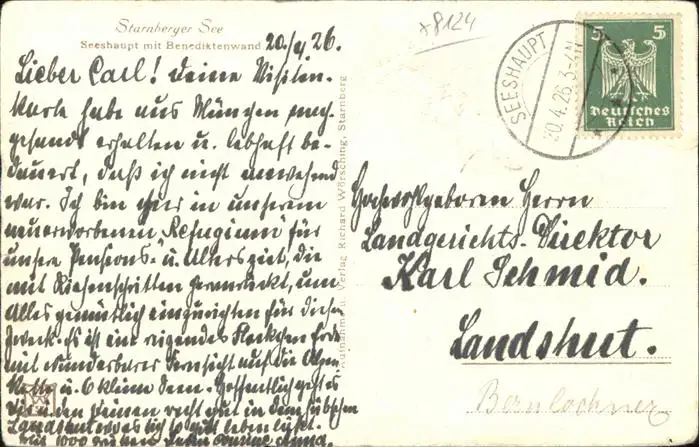 Starnberger See
Seeshaupt mit Benediktenwand
20./4 26.
+8124
Lieber Carl! Deine Visiten-
karte habe aus München nach-
gesandt erhalten u. lebhaft be-
dauert, daß ich nicht anwesend
war. Ich bin hier in unserem
neuerworbenen Refugium für
unsere Pensions- u. Alterszeit, die
mit Riesenschritten heranrückt, um
Alles gemütlich einzurichten für diesen
Zweck. Es ist ein reizendes Fleckchen Erde
mit wunderbarer Fernsicht auf die Alpen-
kette u. 6 kleine Seen. Hoffentlich geht es
den Deinen recht gut in dem hübschen
Landshut
1000
Aufnahme u. Verlag Richard Wörsching, Starnberg
SEESHAUPT
20.4.26.3-4N
5 5
Deutsches
Reich
Hochwohlgeboren Herrn
Landgerichts-Direktor
Karl Schmid.
Landshut.
Bernlochner